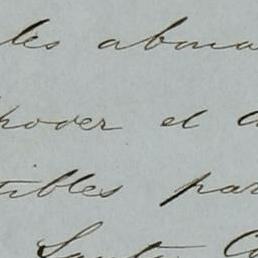 les abona
poder el
tibles par
Santa C